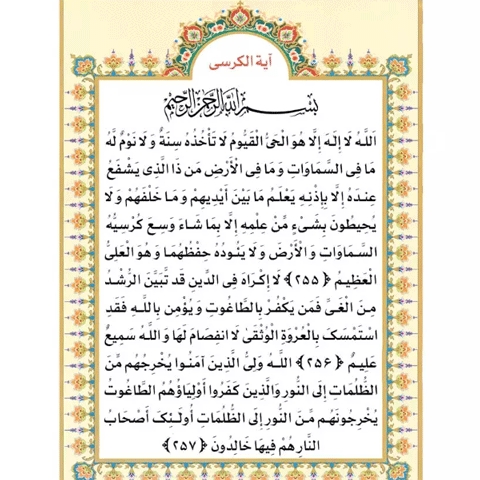 آیة الکرسی
بِسْمِ اللَّهِ الرَّحْمَنِ الرَّحِيمِ
اَللَّـهُ لَا إِلَـٰهَ إِلَّا هُوَ الْحَيُّ الْقَيُّومُ لَا تَأْخُذُهُ سِنَةٌ وَ لَا نَوْمٌ لَّهُ
مَا فِي السَّمَاوَاتِ وَ مَا فِي الْأَرْضِ مَن ذَا الَّذِي يَشْفَعُ
عِندَهُ إِلَّا بِإِذْنِهِ يَعْلَمُ مَا بَيْنَ أَيْدِيهِمْ وَ مَا خَلْفَهُمْ وَ لَا
يُحِيطُونَ بِشَيْءٍ مِّنْ عِلْمِهِ إِلَّا بِمَا شَاءَ وَسِعَ كُرْسِيُّهُ
السَّمَاوَاتِ وَ الْأَرْضَ وَ لَا يَئُودُهُ حِفْظُهُمَا وَ هُوَ الْعَلِيُّ
الْعَظِيمُ ﴿۲۵۵﴾ لَا إِكْرَاهَ فِي الدِّينِ قَد تَّبَيَّنَ الرُّشْدُ
مِنَ الْغَيِّ فَمَن يَكْفُرْ بِالطَّاغُوتِ وَ يُؤْمِن بِاللَّـهِ فَقَدِ
اسْتَمْسَكَ بِالْعُرْوَةِ الْوُثْقَىٰ لَا انفِصَامَ لَهَا وَ اللَّـهُ سَمِيعٌ
عَلِيمٌ ﴿۲۵۶﴾ اللَّـهُ وَلِيُّ الَّذِينَ آمَنُوا يُخْرِجُهُم مِّنَ
الظُّلُمَاتِ إِلَى النُّورِ وَالَّذِينَ كَفَرُوا أَوْلِيَاؤُهُمُ الطَّاغُوتُ
يُخْرِجُونَهُم مِّنَ النُّورِ إِلَى الظُّلُمَاتِ أُولَـئِكَ أَصْحَابُ
النَّارِ هُمْ فِيهَا خَالِدُونَ ﴿۲۵۷﴾